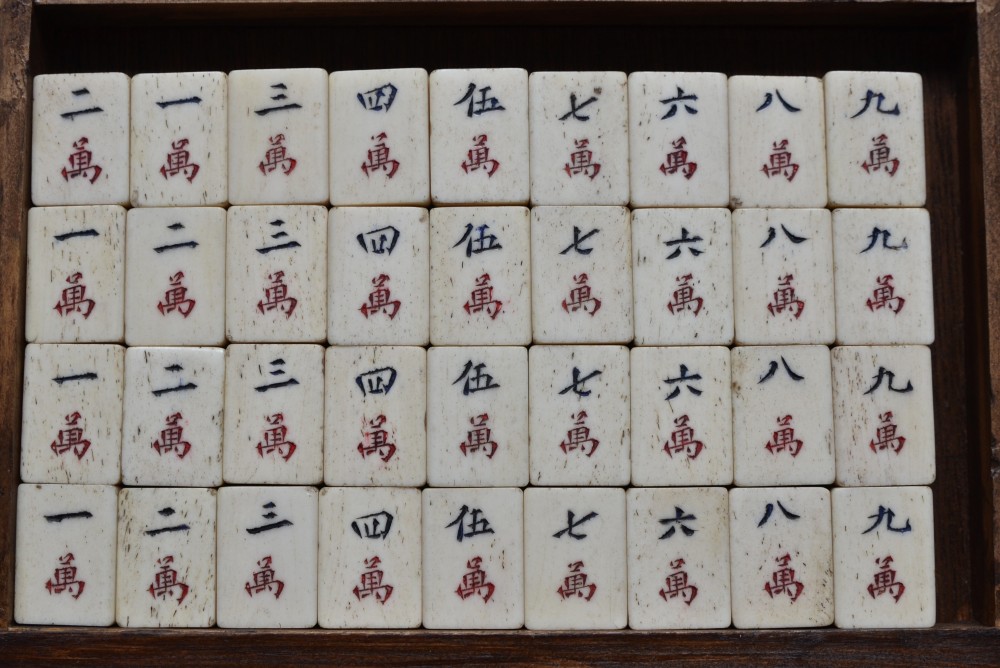 二 一 三 四 伍 七 六 八 九
萬 萬 萬 萬 萬 萬 萬 萬 萬
一 二 三 四 伍 七 六 八 九
萬 萬 萬 萬 萬 萬 萬 萬 萬
一 二 三 四 伍 七 六 八 九
萬 萬 萬 萬 萬 萬 萬 萬 萬
一 二 三 四 伍 七 六 八 九
萬 萬 萬 萬 萬 萬 萬 萬 萬